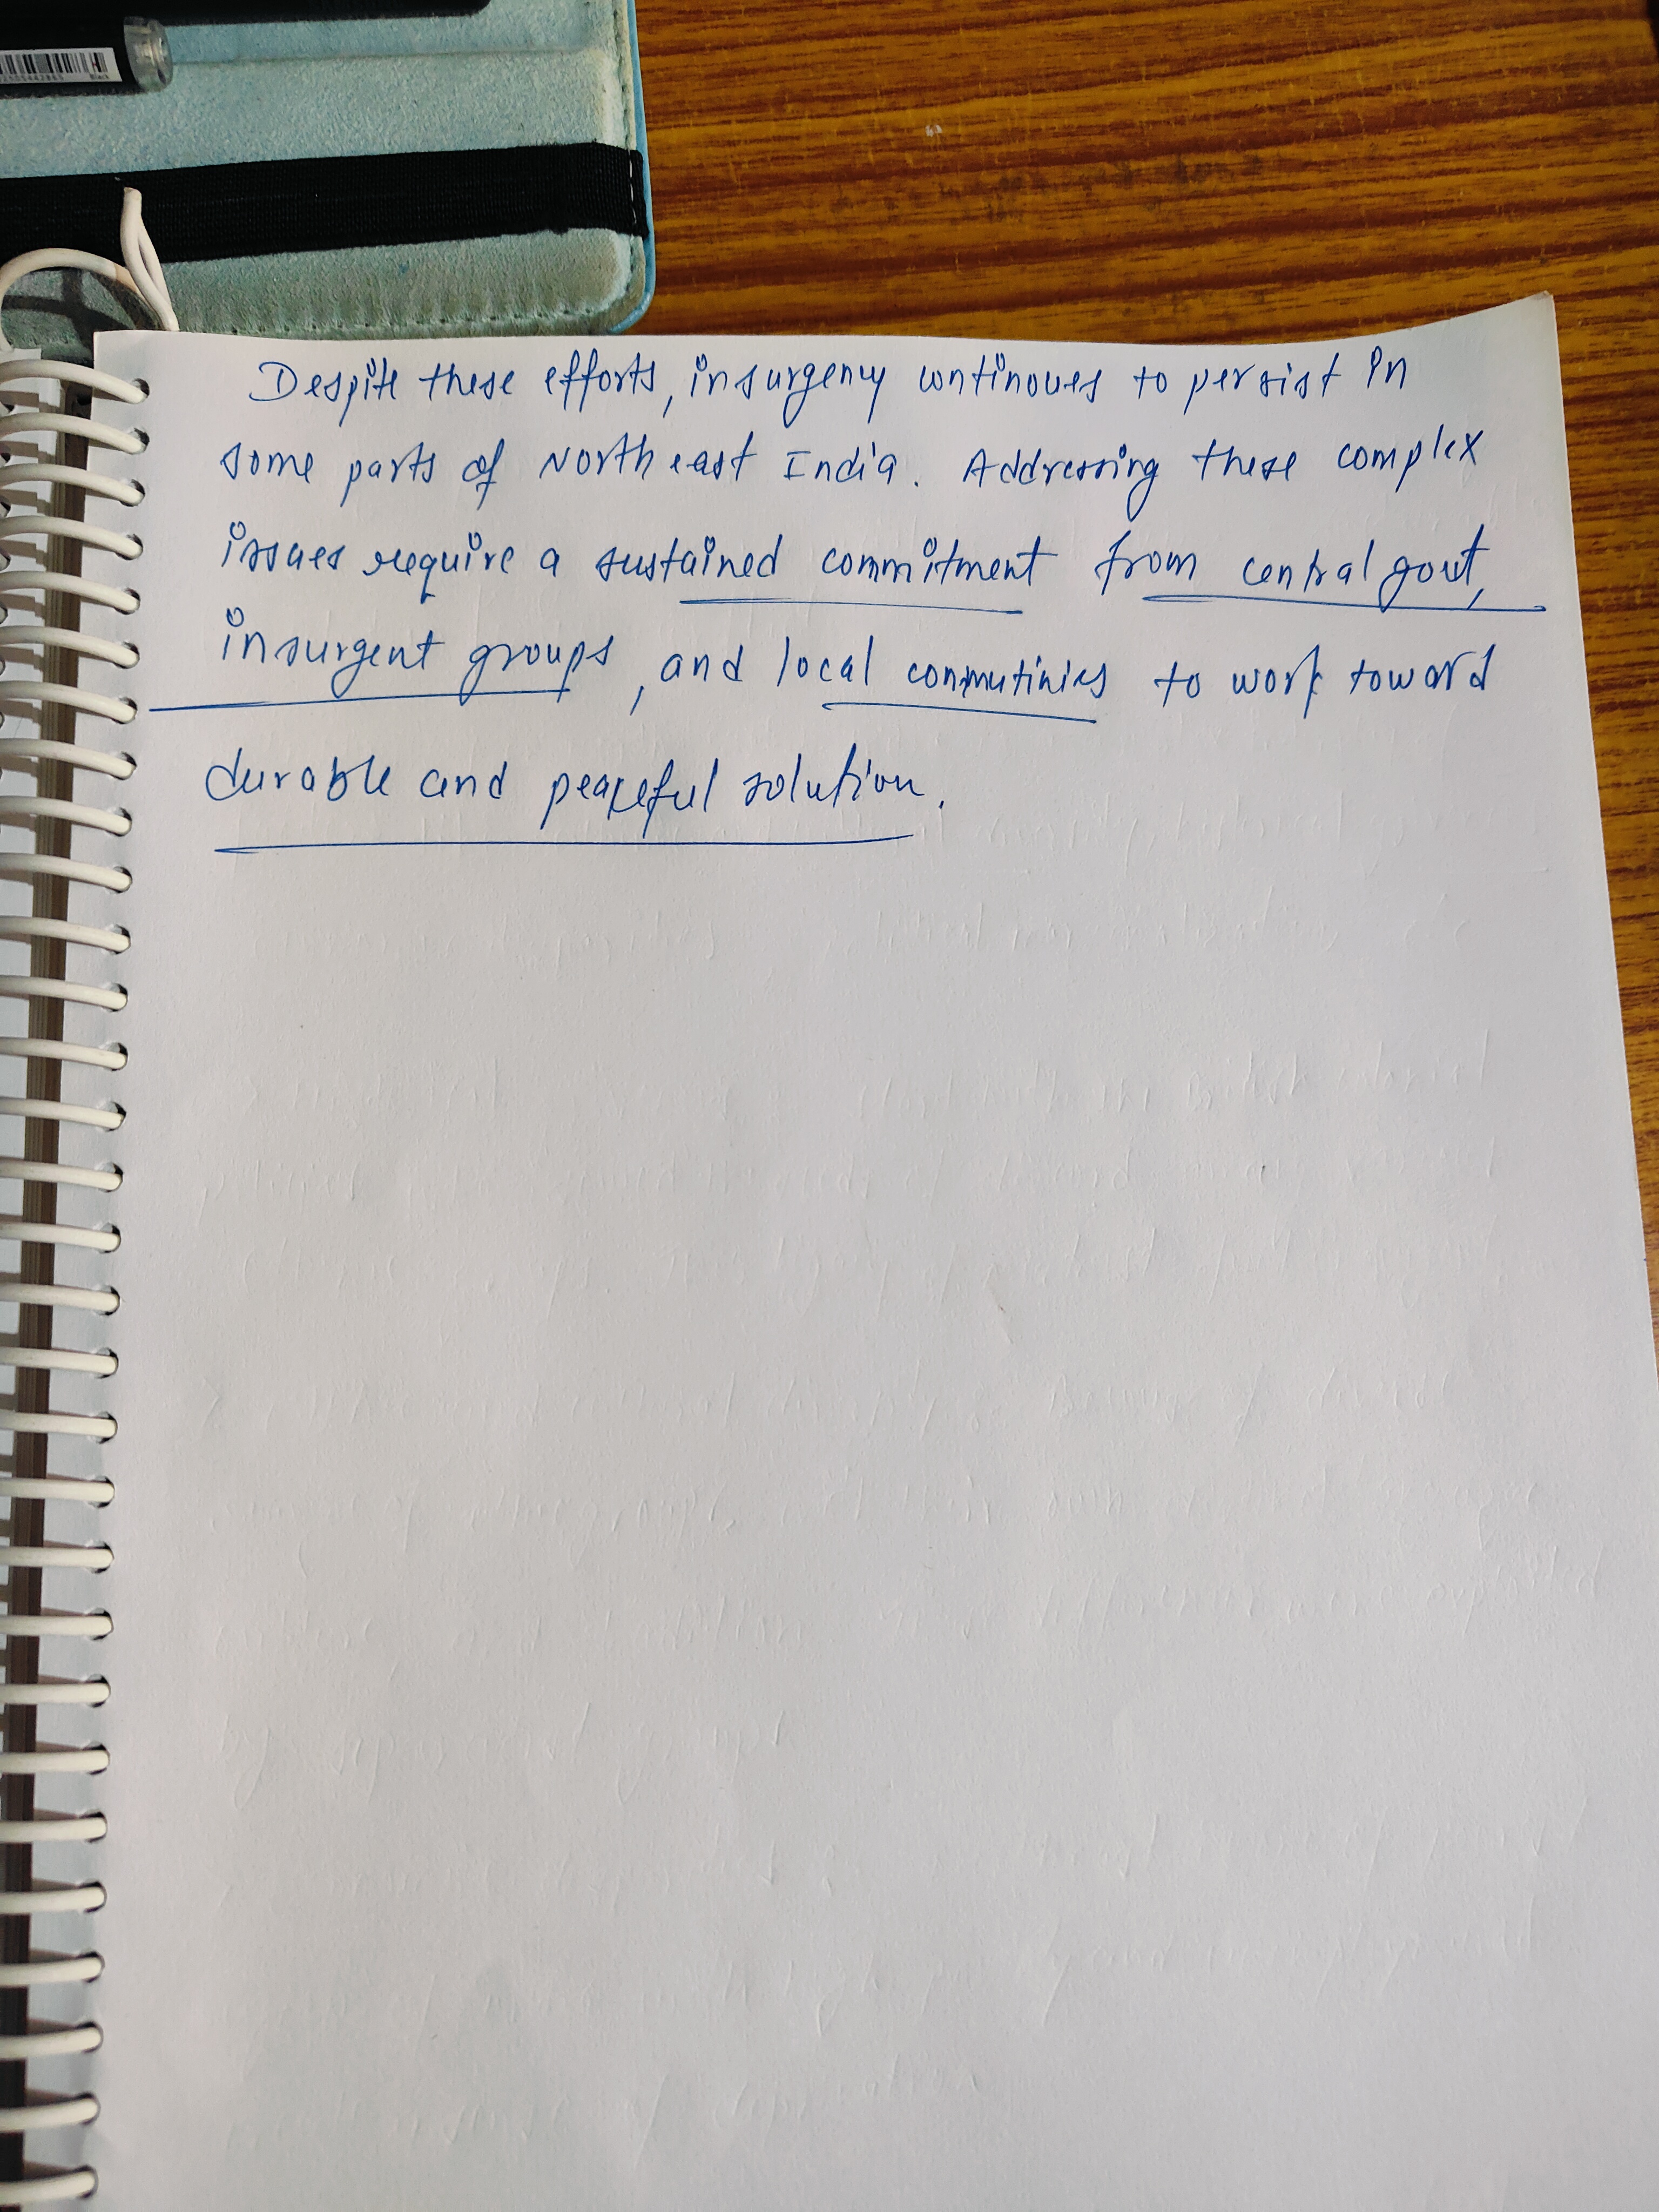 Black
Despite these efforts, insurgency continoues to persist in
some parts of North east India. Addressing these complex
issues require a sustained commitment from central govt,
insurgent groups, and local conmutinies to work toward
durable and peaceful solution.